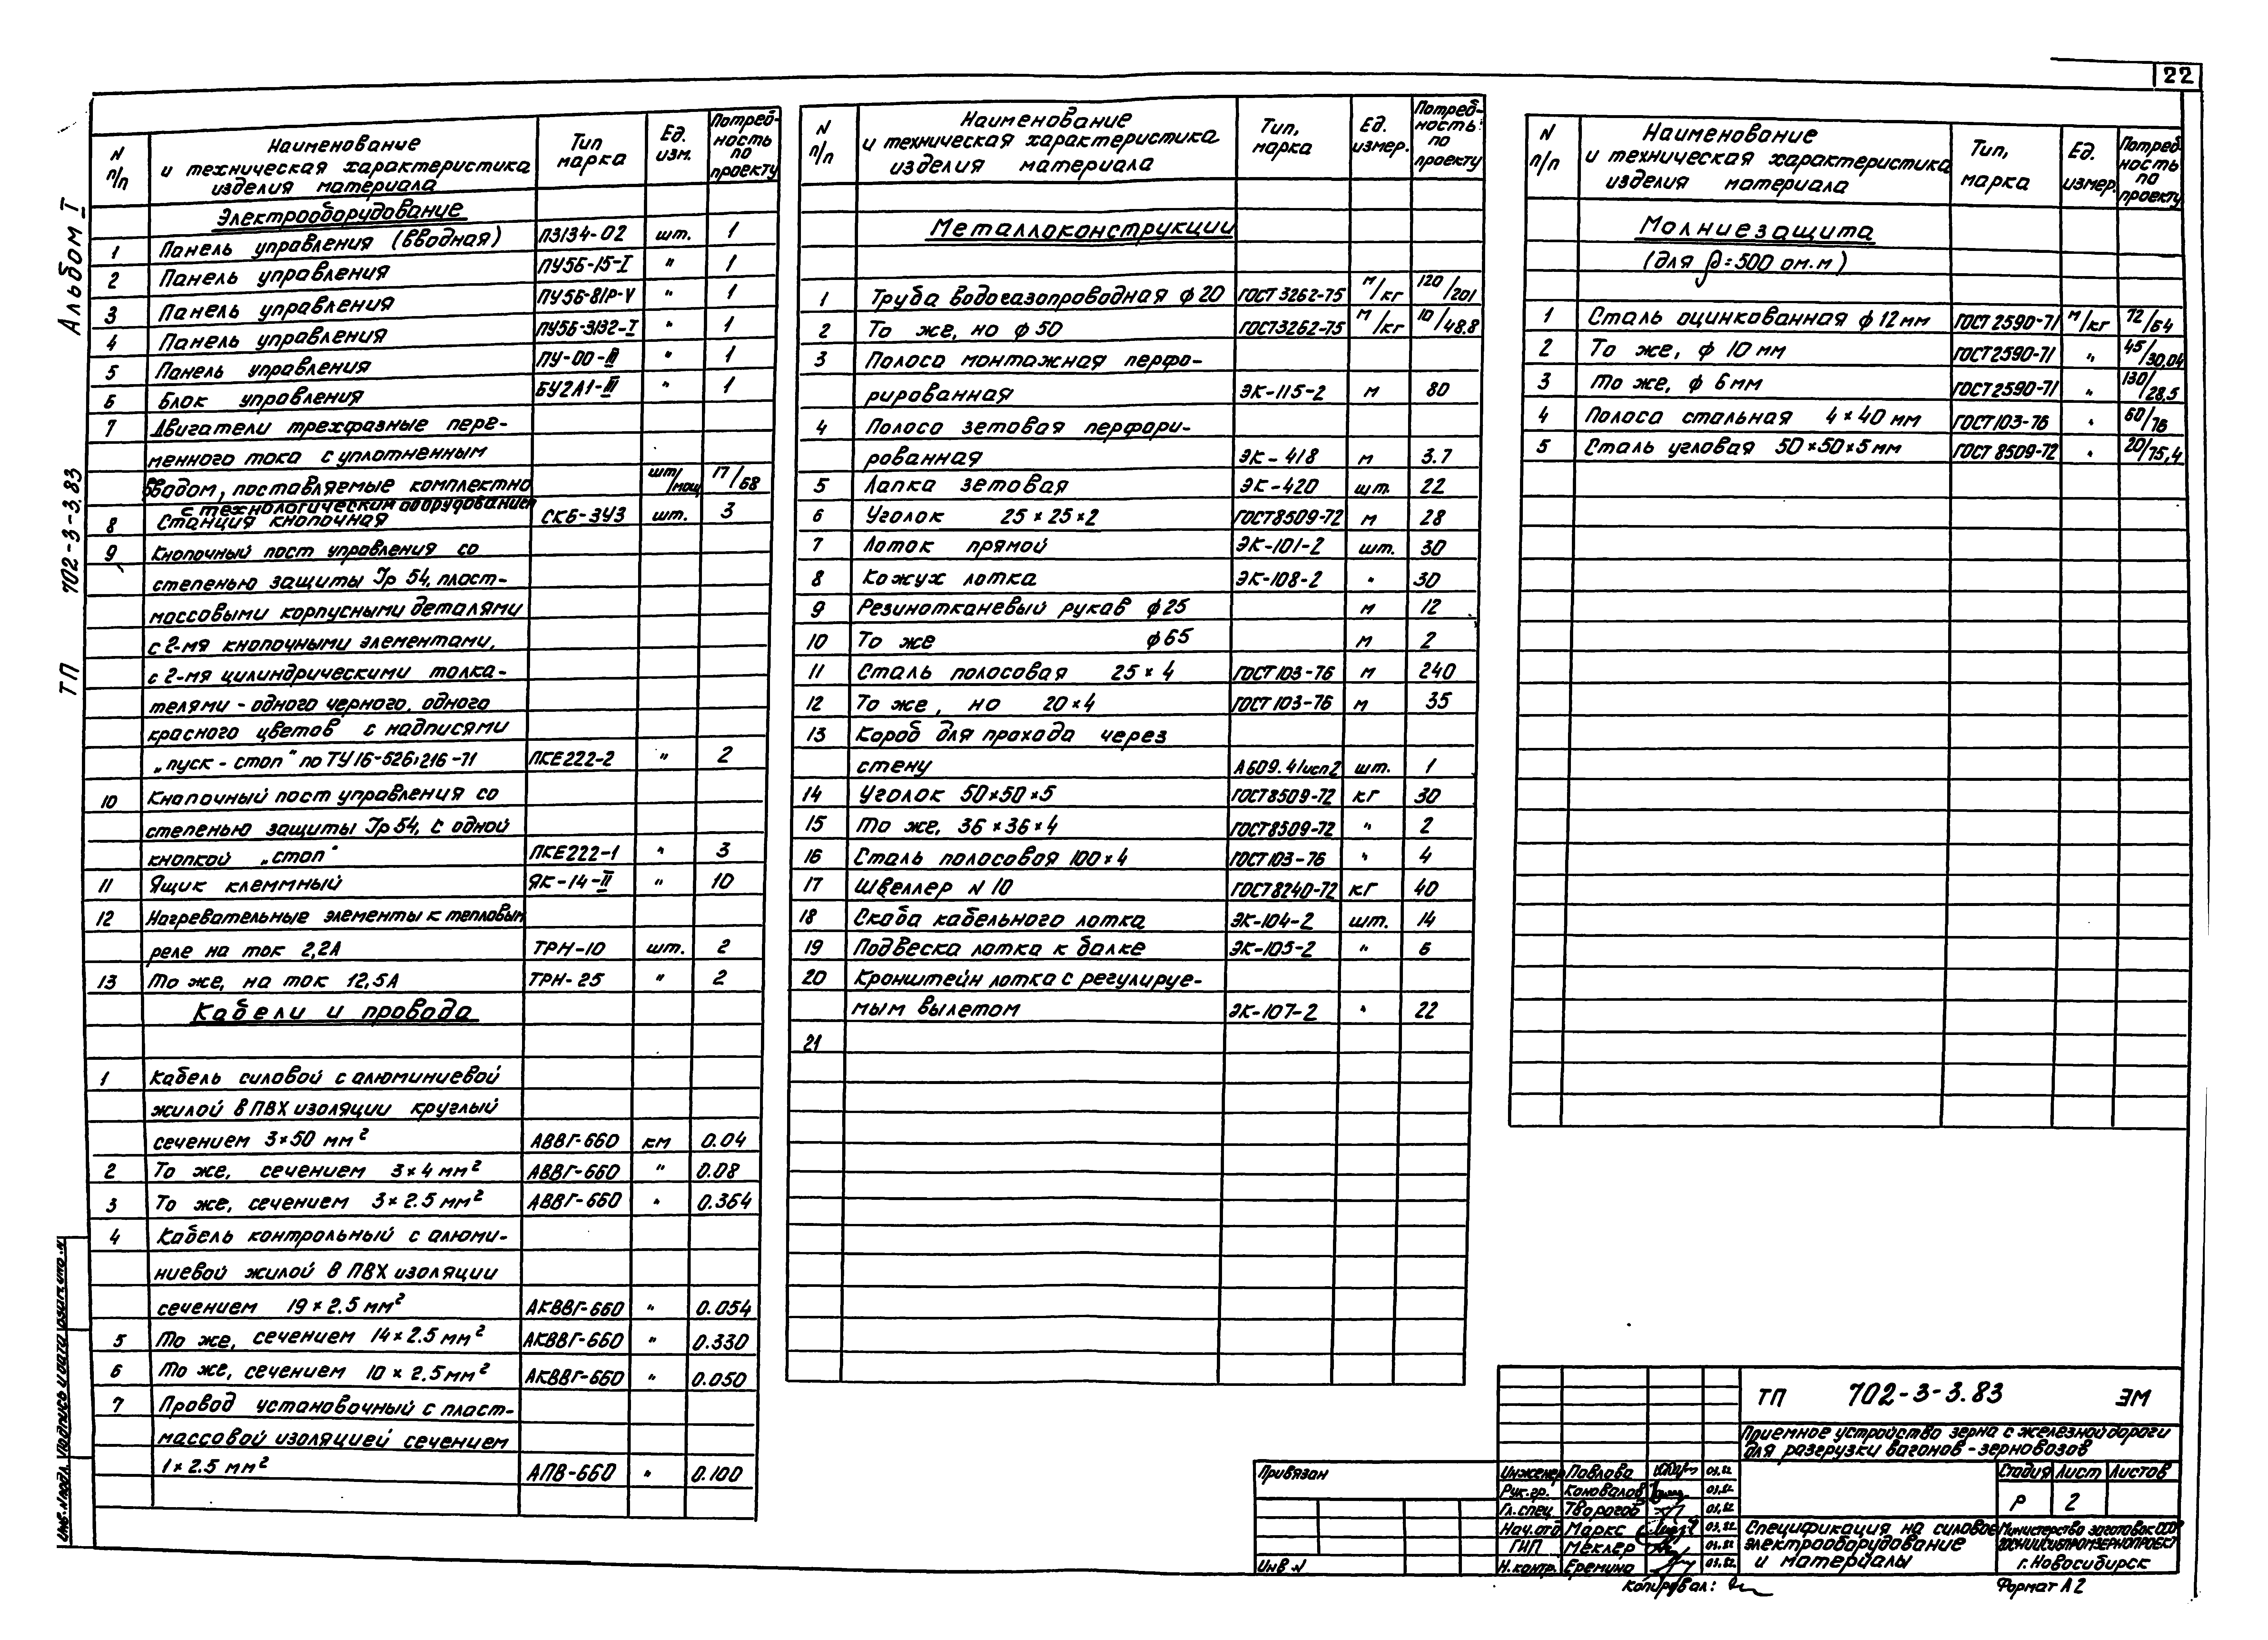 22
Альбом I
ТП 702-3-3.83
N п/п
Наименование и техническая характеристика изделия материала
Тип марка
Ед. изм.
Потреб- ность по проекту
Электрооборудование
1 Панель управления (вводная) П3134-02 шт. 1
2 Панель управления ПУ5Б-15-I " 1
3 Панель управления ПУ5Б-81Р-V " 1
4 Панель управления ПУ5Б-3132-I " 1
5 Панель управления ПУ-00-III " 1
6 Блок управления БУ2А1-III " 1
7 Двигатели трехфазные пере-
менного тока с уплотненным
вводом, поставляемые комплектно шт/мощ 17/68
с технологическим оборудованием
8 Станция кнопочная СКБ-3У3 шт. 3
9 Кнопочный пост управления со
степенью защиты Jp 54, пласт-
массовыми корпусными деталями
с 2-мя кнопочными элементами,
с 2-мя цилиндрическими толка-
телями - одного черного, одного
красного цветов с надписями
„пуск - стоп" по ТУ16-526.216-71 ПКЕ222-2 " 2
10 Кнопочный пост управления со
степенью защиты Jp 54, с одной
кнопкой „стоп" ПКЕ222-1 " 3
11 Ящик клеммный ЯК-14-II " 10
12 Нагревательные элементы к тепловым
реле на ток 2,2А ТРН-10 шт. 2
13 То же, на ток 12,5А ТРН-25 " 2
Кабели и провода
1 Кабель силовой с алюминиевой
жилой в ПВХ изоляции круглый
сечением 3×50 мм² АВВГ-660 км 0.04
2 То же, сечением 3×4 мм² АВВГ-660 " 0.08
3 То же, сечением 3×2.5 мм² АВВГ-660 " 0.364
4 Кабель контрольный с алюми-
ниевой жилой в ПВХ изоляции
сечением 19×2.5 мм² АКВВГ-660 " 0.054
5 То же, сечением 14×2.5 мм² АКВВГ-660 " 0.330
6 То же, сечением 10×2.5 мм² АКВВГ-660 " 0.050
7 Провод установочный с пласт-
массовой изоляцией сечением
1×2.5 мм² АПВ-660 " 0.100
N п/п
Наименование и техническая характеристика изделия материала
Тип, марка
Ед. измер.
Потреб- ность по проекту
Металлоконструкции
1 Труба водогазопроводная ф20 ГОСТ 3262-75 м/кг 120/201
2 То же, но ф50 ГОСТ3262-75 м/кг 10/48.8
3 Полоса монтажная перфо-
рированная ЭК-115-2 м 80
4 Полоса зетовая перфори-
рованная ЭК-418 м 3.7
5 Лапка зетовая ЭК-420 шт. 22
6 Уголок 25×25×2 ГОСТ8509-72 м 28
7 Лоток прямой ЭК-101-2 шт. 30
8 Кожух лотка ЭК-108-2 " 30
9 Резинотканевый рукав ф25 м 12
10 То же ф65 м 2
11 Сталь полосовая 25×4 ГОСТ103-76 м 240
12 То же, но 20×4 ГОСТ103-76 м 35
13 Короб для прохода через
стену А609.41исп2 шт. 1
14 Уголок 50×50×5 ГОСТ8509-72 кг 30
15 То же, 36×36×4 ГОСТ8509-72 " 2
16 Сталь полосовая 100×4 ГОСТ103-76 " 4
17 Швеллер N 10 ГОСТ8240-72 кг 40
18 Скоба кабельного лотка ЭК-104-2 шт. 14
19 Подвеска лотка к балке ЭК-105-2 " 6
20 Кронштейн лотка с регулируе-
мым вылетом ЭК-107-2 " 22
21
N п/п
Наименование и техническая характеристика изделия материала
Тип, марка
Ед. измер.
Потреб- ность по проекту
Молниезащита
(для ρ=500 ом.м)
1 Сталь оцинкованная ф12мм ГОСТ 2590-71 м/кг 72/64
2 То же, ф 10 мм ГОСТ2590-71 " 45/30,04
3 То же, ф 6 мм ГОСТ2590-71 " 130/28,5
4 Полоса стальная 4×40 мм ГОСТ103-76 " 60/76
5 Сталь угловая 50×50×5мм ГОСТ 8509-72 " 20/75,4
Инв.№подл. Подпись и дата Взам.инв.N
Привязан
Инв N
Инженер Павлова 03.82
Рук.гр. Коновалов 03.82
Гл.спец. Творогов 03.82
Нач.отд Маркс 03.82
ГИП Меклер 03.82
Н.контр. Еремина 03.82
ТП 702-3-3.83 ЭМ
Приемное устройство зерна с железной дороги
для разгрузки вагонов-зерновозов
Стадия Лист Листов
Р 2
Спецификация на силовое
электрооборудование
и материалы
Министерство заготовок СССР
г.Новосибирск
Копировал:
Формат А2